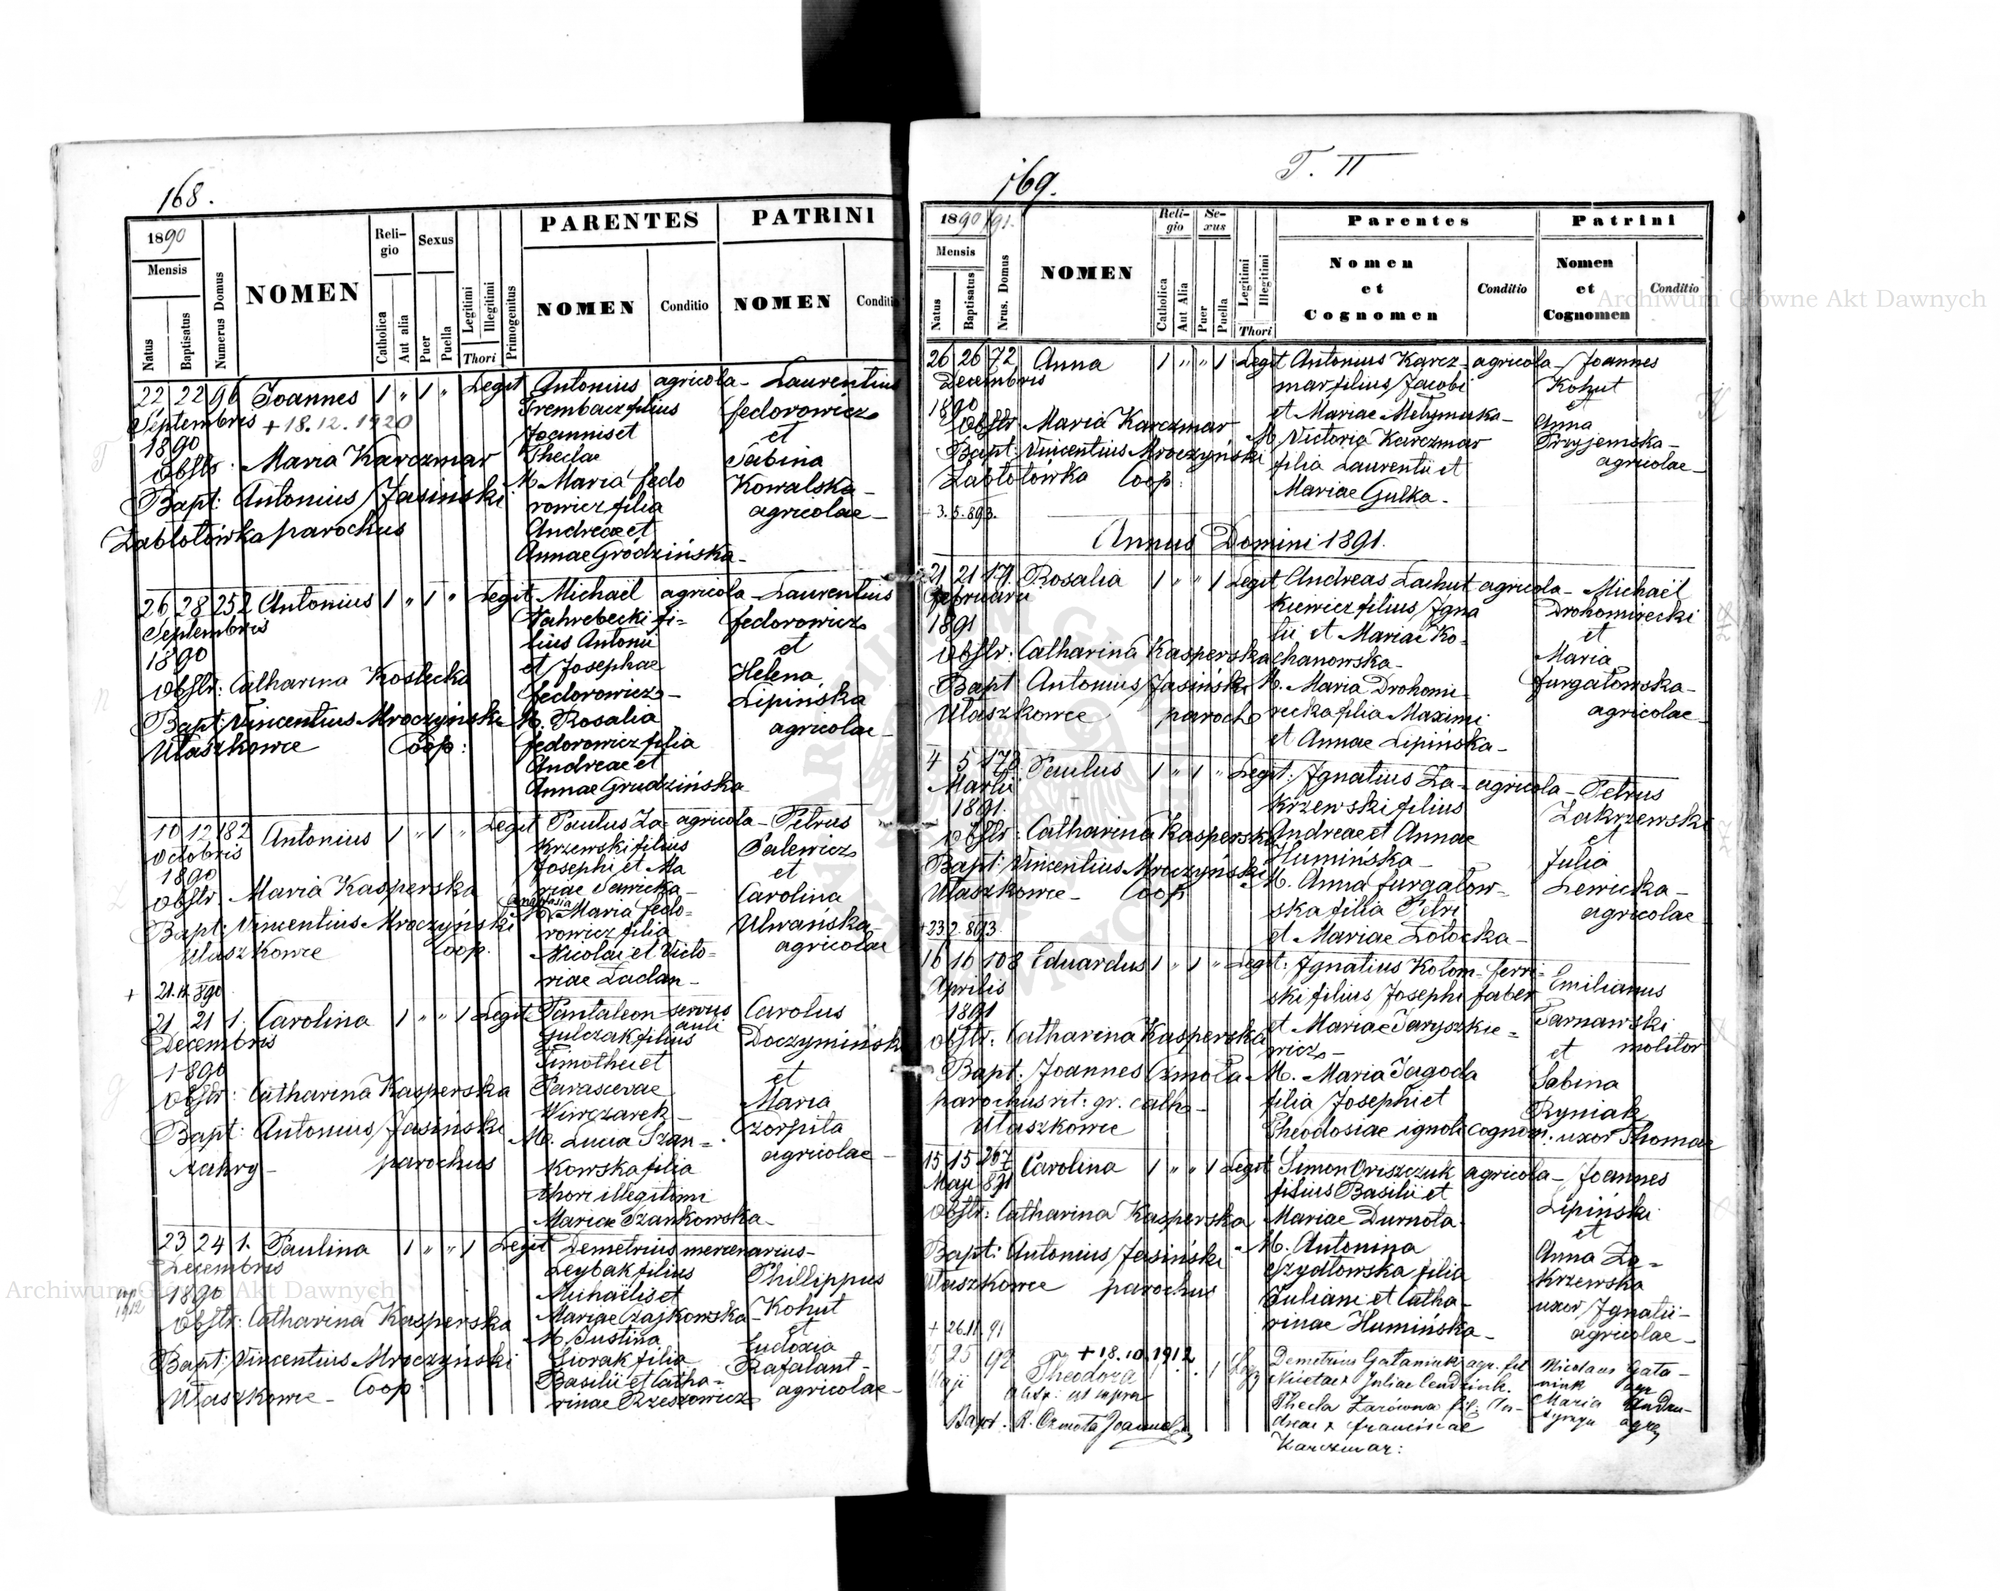 168.
1890
Mensis
Natus
Baptisatus
Numerus Domus
NOMEN
Religio
Catholica
Aut alia
Sexus
Puer
Puella
Legitimi
Illegitimi
Thori
Primogenitus
PARENTES
NOMEN
Conditio
PATRINI
NOMEN
Conditi
22 22 96 Joannes 1 " 1 " Legit Antonius agricola - Laurentius
Septembris + 18.12.1920 Trembacz filius fedorowicz
1890 Joannis et et
Obstr: Maria Karczmar Theclae Sabina
Bapt: Antonius Jasiński M. Maria fedo Kowalska -
Zabłotówka parochus rowicz filia agricolae -
Andreae et
Annae Gródzińska -
26 28 252 Antonius 1 " 1 " Legit Michael agricola - Laurentius
Septembris Zahrebecki fi- fedorowicz
1890 lius Antonii et
Obstr: Catharina Kostecka et Josephae Helena
fedorowicz - Lipińska
Bapt: Vincentius Mroczyński M. Rosalia agricolae -
Ułaszkowce Coop: fedorowicz filia
Andreae et
Annae Grudzińska
10 12 182 Antonius 1 " 1 " Legit Paulus Za- agricola - Petrus
Octobris krzewski filius Salewicz
1890 Josephi et Ma et
Obstr Maria Kasperska riae Sawicka - Carolina
Anastasia
Bapt: Vincentius Mroczyński M. Maria fedo- Ulwańska
Ułaszkowce Coop. rowicz filia agricolae
Nicolai et Victo-
riae Laclan -
+ 21.12.890
21 21 1. Carolina 1 " " 1 Legit Pantaleon servus Carolus
Decembris Gulczak filius auli Doczymińsk
1890 Timothei et et
Obstr: Catharina Kasperska Parascevae Maria
Bapt: Antonius Jasiński Wirczarek - Czorpita
Nahrg - parochus M. Lucia Szan- agricolae -
kowska filia
thori illegitimi
Mariae Szankowska -
23 24 1. Paulina 1 " " 1 Legit Demetrius mercenarius -
Decembris Leybak filius Phillippus
1890 Michaelis et Kohut
Obstr: Catharina Kasperska Mariae Czajkowska - et
M. Justina Eudoxia
Bapt: Vincentius Mroczyński Siorak filia Rafalant -
Ułaszkowce - Coop: Basilii et Catha- agricolae -
rinae Rzeszowicz
1912
169.
T. II
1890/91.
Mensis
Natus
Baptisatus
Nrus. Domus
NOMEN
Religio
Catholica
Aut Alia
Sexus
Puer
Puella
Legitimi
Illegitimi
Thori
Parentes
Nomen
et
Cognomen
Conditio
Patrini
Nomen
et
Cognomen
Conditio
26 26 72 Anna 1 " " 1 Legit Antonius Karcz- agricola - Joannes
Decembris mar filius Jacobi Kohut
1890 et Mariae Melymuka - et
Obstr Maria Karczmar M. Victoria Karczmar Anna
Bapt: Vincentius Mroczyński filia Laurentii et Przyjemska -
Zabłotówka Coop: Mariae Gulka - agricolae -
+ 3.5.893.
Annus Domini 1891.
21 21 171. Rosalia 1 " " 1 Legit Andreas Lachut agricola - Michaël
Februarii kiewicz filius Igna Drohomirecki
1891 tii et Mariae Ko- et
Obstr: Catharina Kasperska chanowska - Maria
Bapt Antonius Jasiński M. Maria Drohomi- furgałowska -
Ułaszkowce paroch recka filia Maximi agricolae -
et Annae Lipińska -
4 5 178 Paulus 1 " 1 " Legit: Ignatius Za- agricola - Petrus
Martii krzewski filius Zakrzewski
1891. Andreae et Annae et
Obstr: Catharina Kasperska Humińska - Julia
Bapt: Vincentius Mroczyński M. Anna furgałow- Lewicka -
Ułaszkowce - Coop ska filia Petri agricolae
+ 23.2.893. et Mariae Zołocka -
16 16 108 Eduardus 1 " 1 " Legit: Ignatius Kolom- ferri- Emilianus
Aprilis ski filius Josephi faber Tarnawski
1891 et Mariae Jaryszkie- et molitor
Obstr: Catharina Kasperska wicz -
Bapt: Joannes Czmoła M. Maria Jagoda Sabina
parochus rit. gr. cath - filia Josephi et Ryniak
Ułaszkowce Theodosiae ignoti cognom. uxor Thomae
15 15 267 Carolina 1 " " 1 Legit Simon Oriszczuk agricola - Joannes
Maji 891 filius Basilii et Lipiński
Obstr: Catharina Kasperska Mariae Durnota et
Bapt: Antonius Jasiński M. Antonina Anna Za-
Ułaszkowce parochus Szydłowska filia krzewska
Juliani et Catha- uxor Ignatii -
rinae Humińska - agricolae -
+ 26.11.91
25 92 + 18.10.1912 Demetrius Gataniuk agr. fil Nicolaus Gata-
Maji Theodora 1 Nicetae & Juliae niuk agr
obstr: ut supra Thecla Zarówna fil: An- Maria
Bapt. R. Czmoła Joannes dreae & franciscae
Karczmar:
Archiwum Główne Akt Dawnych
Archiwum Główne Akt Dawnych